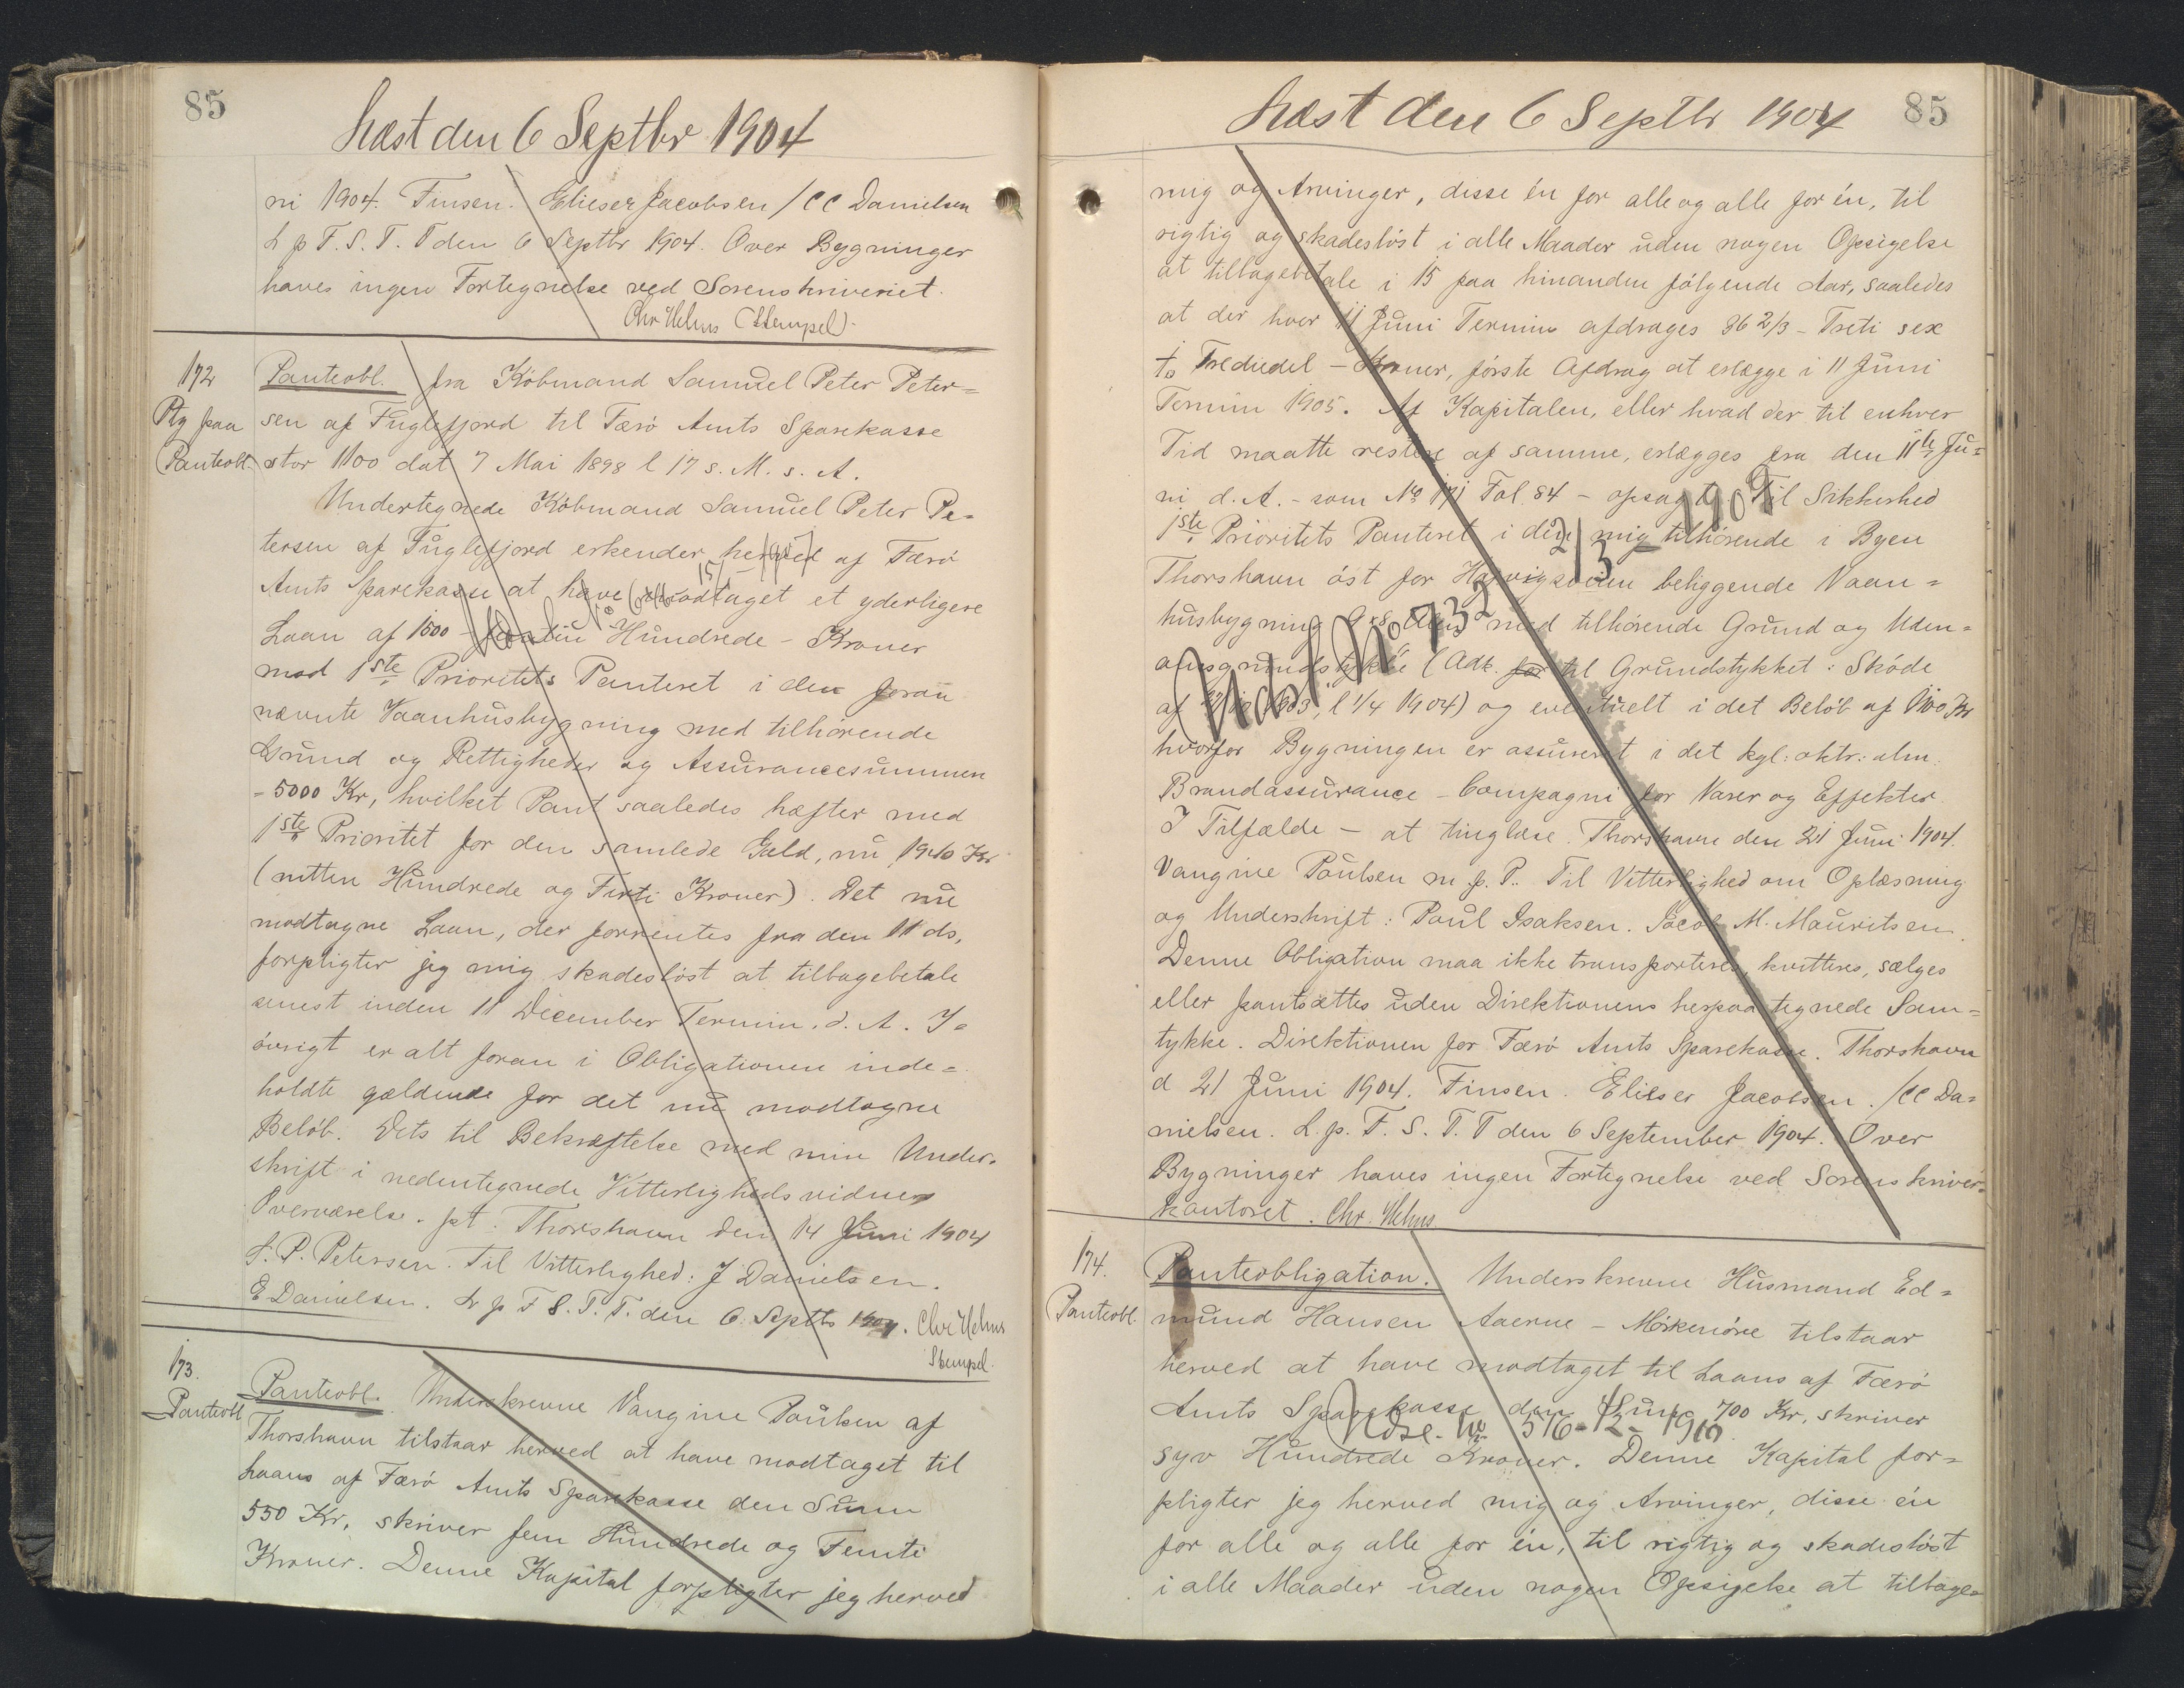 85
Læst den 6 Septbr 1904
ni 1904. Finsen. Elieser Jacobsen / CC Danielsen
L p F. S. T. T den 6 Septbr 1904. Over Bygninger
haves ingen Fortegnelse ved Sorenskriveriet.
Chr Hehns (Stempel).
172
Ptg paa
Panteobl.
Panteobl. fra Köbmand Samuel Peter Peter=
sen af Fuglefjord til Færö Amts Sparekasse
stor 1100 dat 7 Mai 1898 l 17 s. M. s. A.
Undertegnede Köbmand Samuel Peter Pe=
tersen af Fuglefjord erkender herved af Færö
Amts Sparekasse at have modtaget et yderligere
Laan af 1500 – Femtiu Hundrede – Kroner
mod 1ste Prioritets Panteret i den foran
nævnte Vaanhusbygning med tilhörende
Grund og Rettigheder og Assurancesummen
= 5000 Kr, hvilket Pant saaledes hæfter med
1ste Prioritet for den samlede Gæld, nu 1940 Kr
(nitten Hundrede og Firti Kroner). Det nu
modtagne Laan, der forrentes fra den 11 ds,
forpligter jeg mig skadeslöst at tilbagebetale
senest inden 11 December Termin d. A. I=
övrigt er alt foran i Obligationen inde=
holdte gældende for det nu modtagne
Belöb. Dets til Bekræftelse med min Under=
skrift i nedentegnede Vitterligheds vidners
Overværelse. pt. Thorshavn den 14 Juni 1904
S. P. Petersen. Til Vitterlighed: J Danielsen.
E Danielsen. L p F S. T. T. den 6 Septbr 1904. Chr Hehns
Stempel.
173.
Panteobl
Panteobl. Underskrevne Vangine Poulsen af
Thorshavn tilstaar herved at have modtaget til
Laans af Færö Amts Sparekasse den Sum
550 Kr, skriver fem Hundrede og Femti
Kroner. Denne Kapital forpligter jeg herved
Læst den 6 Septbr 1904
85
mig og Arvinger, disse én for alle og alle for én, til
rigtig og skadeslöst i alle Maader uden nogen Opsigelse
at tilbagebetale i 15 paa hinanden fölgende Aar, saaledes
at der hver 11 Juni Termin afdrages 36 2/3 – Treti sex
to Trediedel – Kroner, förste Afdrag at erlægge i 11 Juni
Termin 1905. Af Kapitalen, eller hvad der til enhver
Tid maatte restere af samme, erlægges fra den 11te Ju=
ni d. A. – som No 171 Fol 84 – opsagt. Til Sikkerhed
1ste Prioritets Panteret i den mig tilhörende i Byen
Thorshavn öst for beliggende Vaan=
husbygning med tilhörende Grund og Uden=
omsgrundstykke (Adk. for til Grundstykket: Sköde
af 1903, l 1/4 1904) og eventuelt i det Belöb af 1100 Kr
hvorfor Bygningen er assureret i det kgl: oktr: alm.
Brandassurance – Compagni for Varer og Effekter
I Tilfælde – at tinglæse. Thorshavn den 21 Juni 1904.
Vangine Poulsen m. f. P.. Til Vitterlighed om Oplæsning
og Underskrift: Poul Isaksen. Jacob M. Mauritsen.
Denne Obligation maa ikke transporteres, kvitteres, sælges
eller pantsættes uden Direktionens herpaa tegnede Sam=
tykke. Direktionen for Færö Amts Sparekasse. Thorshavn
d 21 Juni 1904. Finsen. Elieser Jacobsen. / CC Da=
nielsen. L. p. F. S. T. T den 6 September 1904. Over
Bygninger haves ingen Fortegnelse ved Sorenskriver=
kantoret. Chr. Hehns
Udsl. No 732 2/3 1909
174.
Panteobl.
Panteobligation. Underskrevne Husmand Ed=
mund Hansen Aaerne – Mörkenöre tilstaar
herved at have modtaget til Laans af Færö
Amts Sparekasse den Sum 700 Kr, skriver
Udsl. No 516 – 1910
syv Hundrede Kroner. Denne Kapital for=
pligter jeg herved mig og Arvinger, disse én
for alle og alle for én, til rigtig og skadeslöst
i alle Maader uden nogen Opsigelse at tilbage=